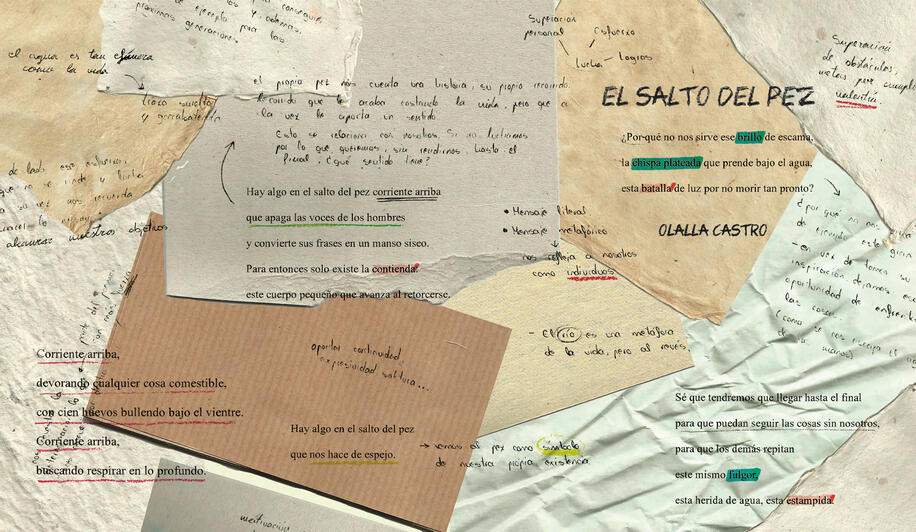 EL SALTO DEL PEZ
¿Por qué no nos sirve ese brillo de escama,
la chispa plateada que prende bajo el agua,
esta batalla de luz por no morir tan pronto?
OLALLA CASTRO
Superación
personal
esfuerzo
lucha - logros
Superación
de obstáculos,
metas por
valentía.
próximas generaciones.
el agua es tan efímera
como la vida
el propio pez nos cuenta una historia, su propio recorrido.
Recorrido que le acaba costando la vida, pero que a
la vez le aporta un sentido.
Esto se relaciona con nosotros. Si no luchamos
por lo que queremos, sin rendirnos, hasta el
final, ¿qué sentido tiene?
Hay algo en el salto del pez corriente arriba
que apaga las voces de los hombres
y convierte sus frases en un manso siseo.
Para entonces solo existe la contienda:
este cuerpo pequeño que avanza al retorcerse.
• Mensaje literal
• Mensaje metafórico
nos refleja a nosotros
como individuos
alcanzar nuestros objetivos
- El río es una metáfora
de la vida, pero al revés.
aportar continuidad,
expresividad soltura...
Corriente arriba,
devorando cualquier cosa comestible,
con cien huevos bullendo bajo el vientre.
Corriente arriba,
buscando respirar en lo profundo.
Hay algo en el salto del pez
que nos hace de espejo.
→ vemos al pez como símbolo
de nuestra propia existencia
¿por qué no nos
de ejemplo este gran
- en vez de
inspiración dejamos
oportunidad de
las cosas
Sé que tendremos que llegar hasta el final
para que puedan seguir las cosas sin nosotros,
para que los demás repitan
este mismo fulgor,
esta herida de agua, esta estampida.
motivación